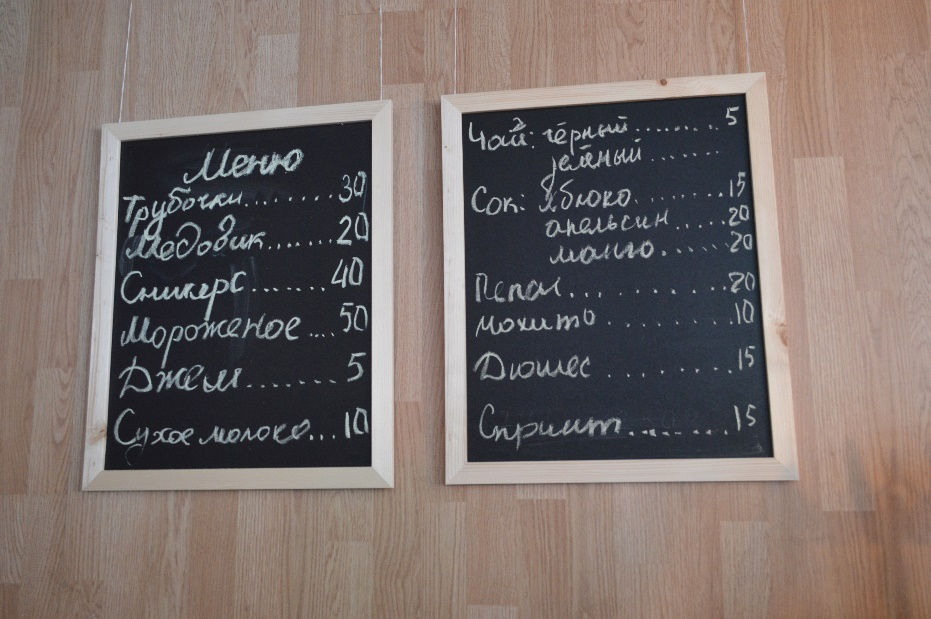 Меню
Трубочки........30
Медовик.......20
Сникерс.......40
Мороженое....50
Джем.......5
Сухое молоко...10
Чай: чёрный........5
зелёный.......
Сок: Яблоко.......15
апельсин....20
манго......20
Пепси........20
Мохито.......10
Дюшес.......15
Спрайт........15